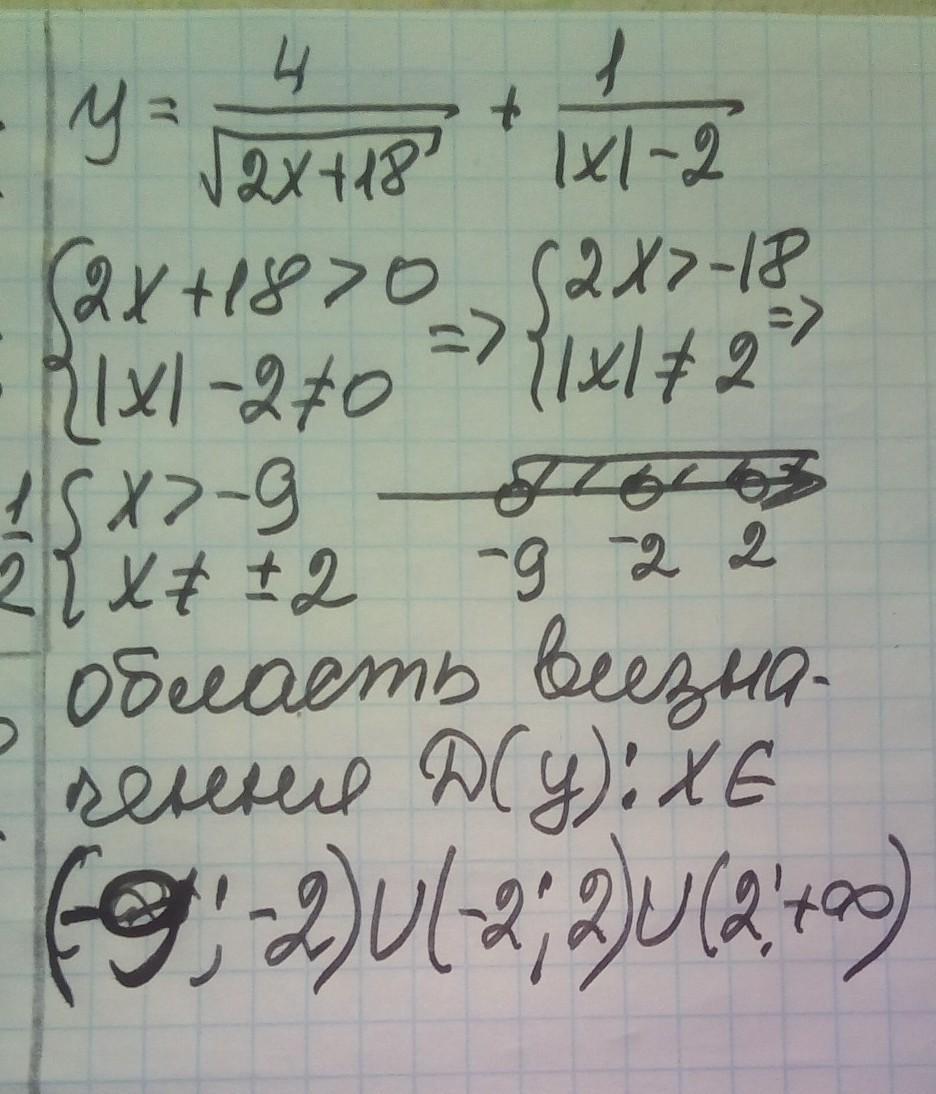 y = 4/√(2x+18) + 1/(|x|-2)
{2x+18>0 => {2x>-18
{|x|-2≠0 {|x|≠2 =>
1/2 {x>-9
{x≠±2
-9 -2 2
область визна-
чення D(y): x∈
(-9; -2)∪(-2; 2)∪(2; +∞)